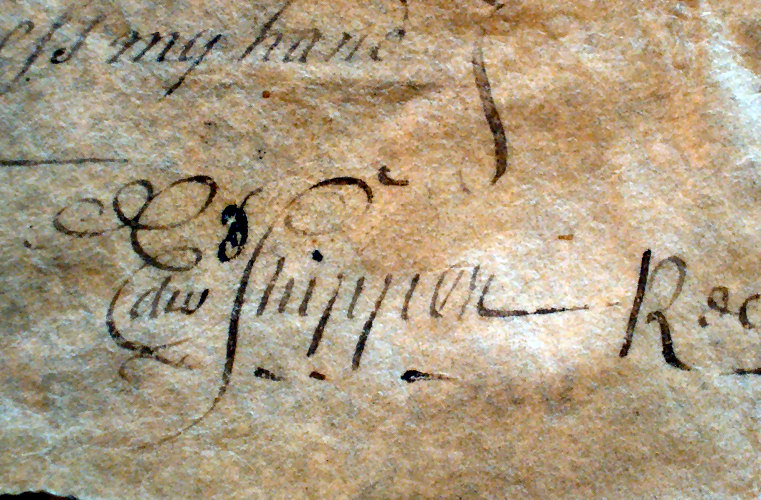 ess my hand
Edwd Shippen Rec